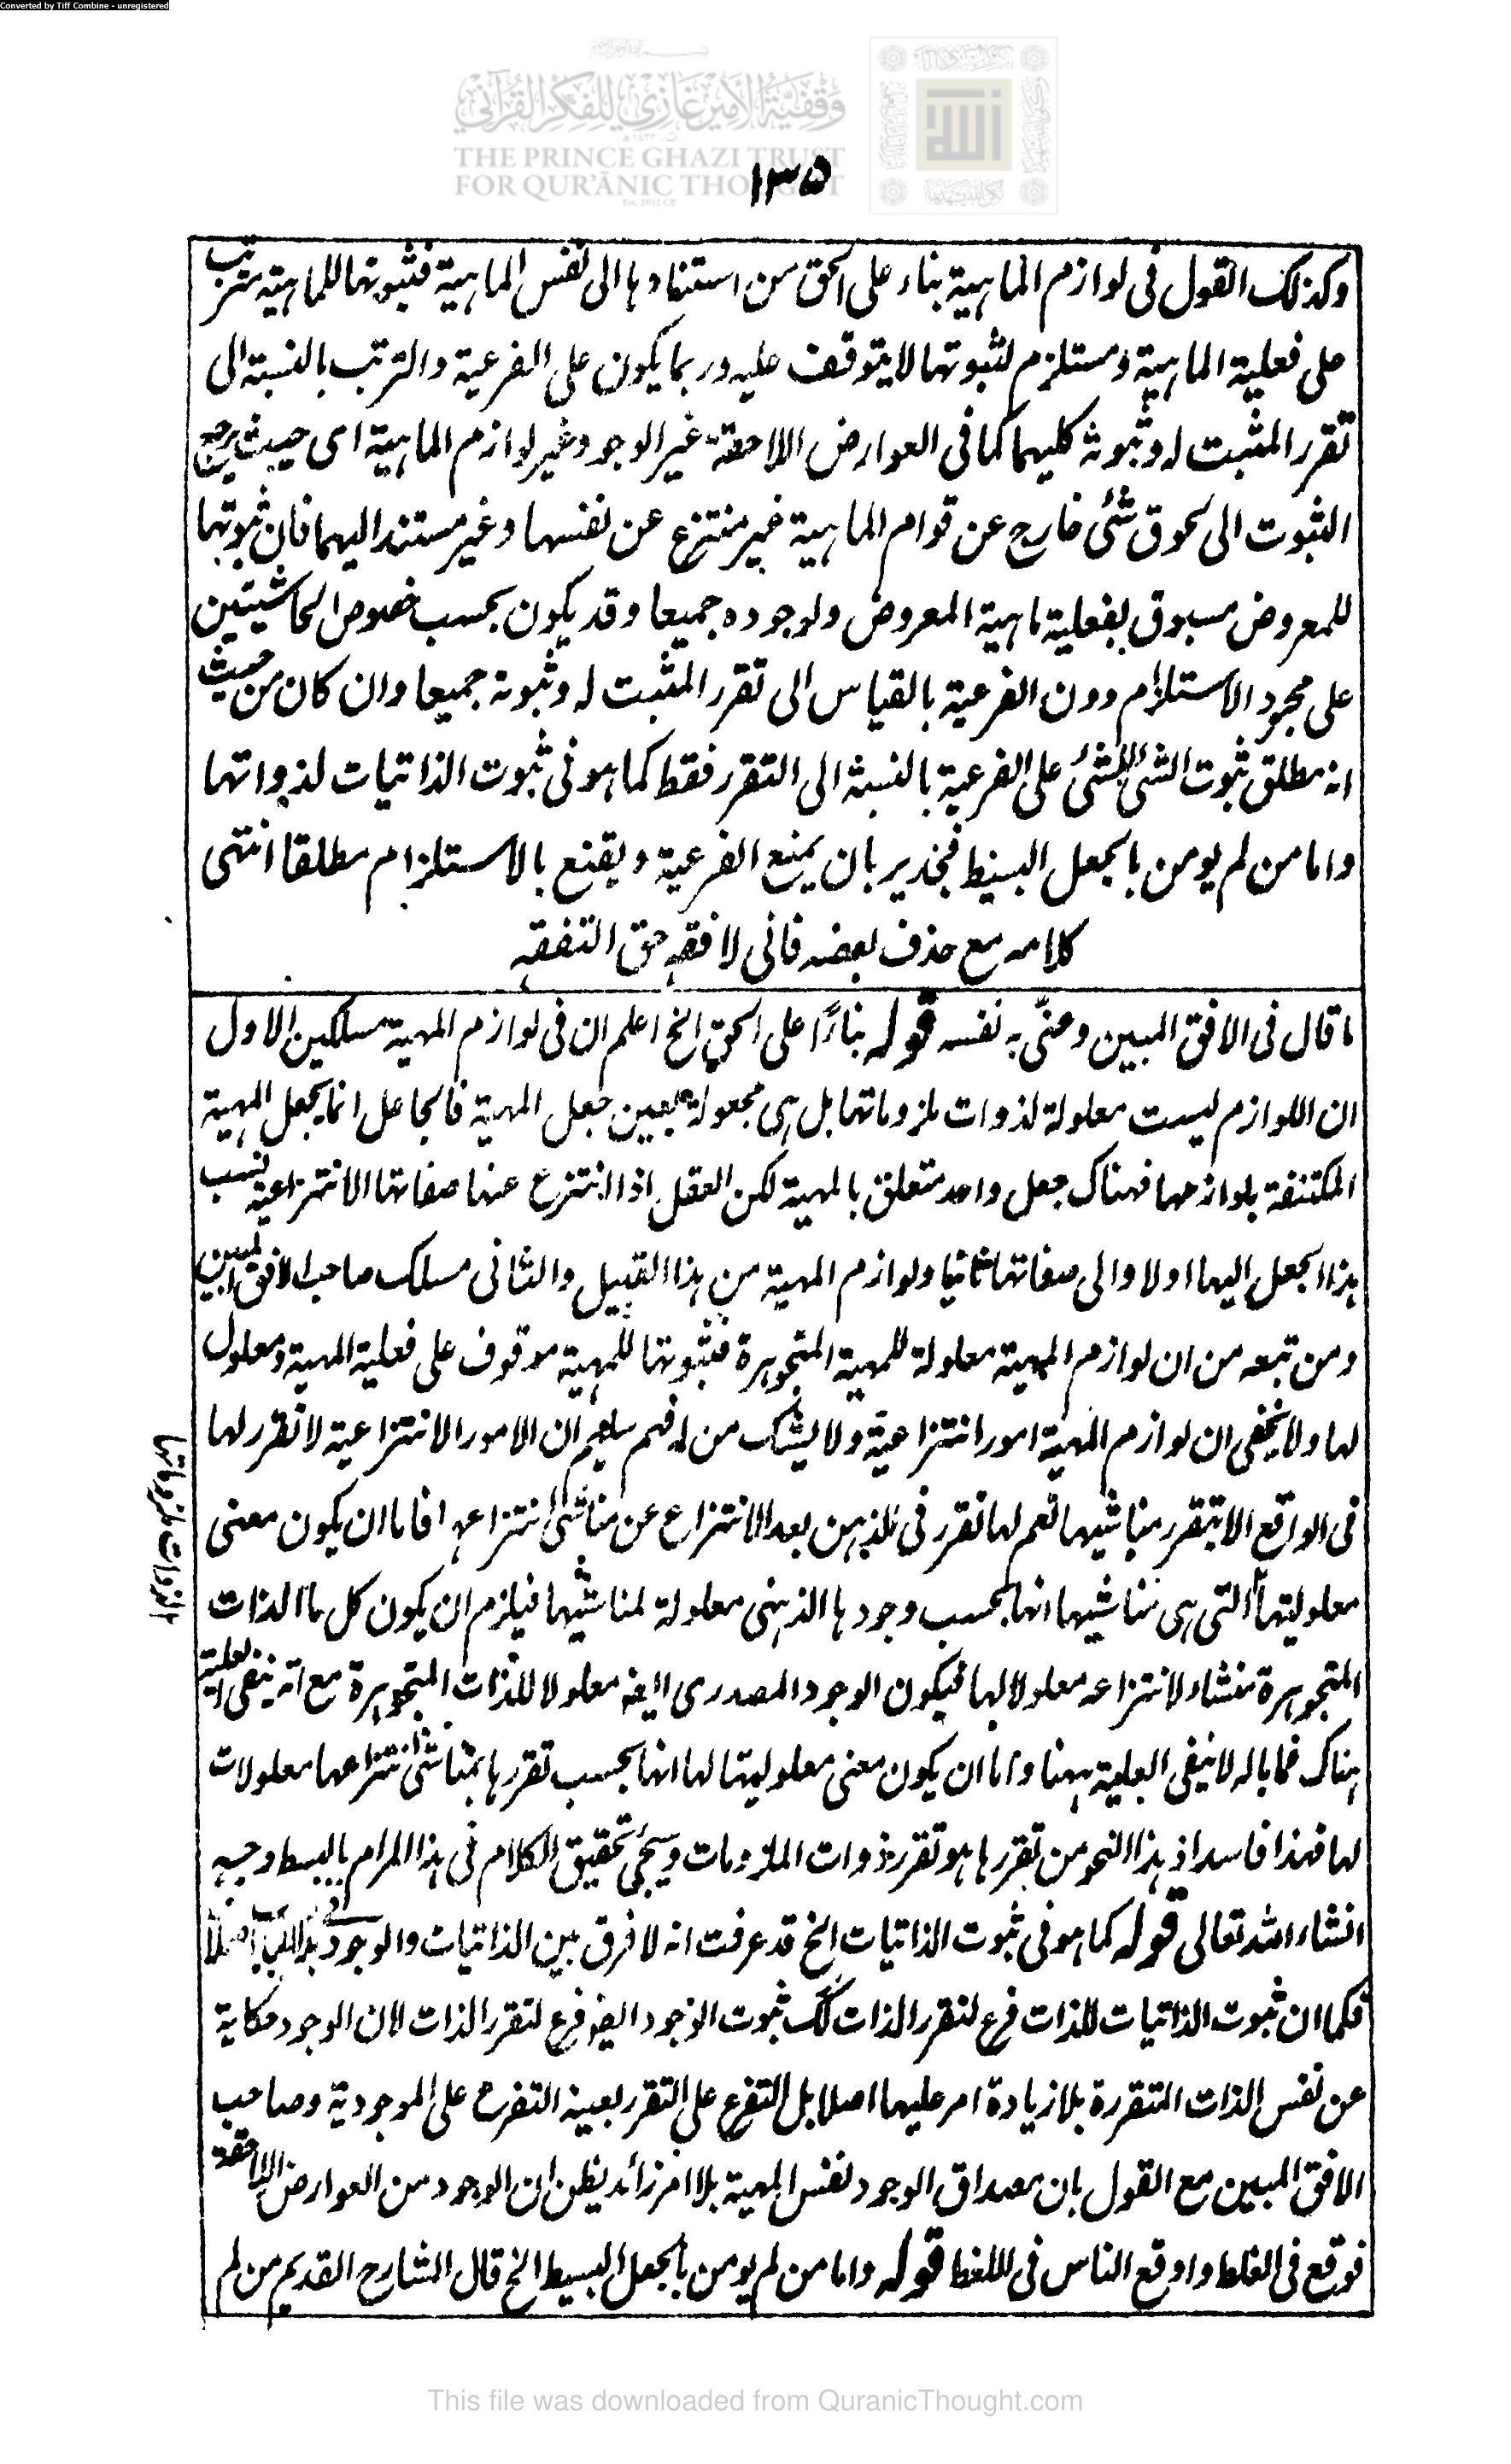 Converted by Tiff Combine - unregistered
وقفية الأمير غازي للفكر القرآني
THE PRINCE GHAZI TRUST
FOR QUR'ĀNIC THOUGHT
١٣٥
وكذلك القول فى لوازم الماهية بناء على الحق من استنادها الى نفس الماهية فثبوتها للماهية مترتب
على فعلية الماهية ومستلزم لثبوتها لا يتوقف عليه وربما يكون على الفرعية والترتب بالنسبة الى
تقرر المثبت له وثبوته كليهما كما فى العوارض اللاحقة غير الوجود وغير لوازم الماهية اى حيث يرجع
الثبوت الى لحوق شئ خارج عن قوام الماهية غير منتزع عن نفسها وغير مستند اليهما فان ثبوتها
للمعروض مسبوق بفعلية ماهية المعروض ولوجوده جميعا وقد يكون بحسب خصوص الحاشيتين
على مجرد الاستلزام دون الفرعية بالقياس الى تقرر المثبت له وثبوته جميعا وان كان من حيث
انه مطلق ثبوت الشئ للشئ على الفرعية بالنسبة الى التقرر فقط كما هو فى ثبوت الذاتيات لذواتها
واما من لم يومن بالجعل البسيط فجدير بان يمنع الفرعية ويقنع بالاستلزام مطلقا انتهى
كلامه مع حذف بعضه فانى لا فقهه حق التفقه
ما قال فى الافق المبين ومنّى به نفسه قوله بناءً على الحق الخ اعلم ان فى لوازم المهية مسلكين الاول
ان اللوازم ليست معلولة لذوات ملزوماتها بل هى مجعولة بعين جعل المهية فالجاعل انما يجعل المهية
المكتنفة بلوازمها فهناك جعل واحد متعلق بالمهية لكن العقل اذا انتزع عنها صفاتها الانتزاعية نسب
هذا الجعل اليها اولا والى صفاتها ثانيا ولوازم المهية من هذا القبيل والثانى مسلك صاحب الافق المبين
ومن تبعه من ان لوازم المهية معلولة للمهية المتجوهرة فثبوتها للمهية موقوف على فعلية المهية ومعلول
لها ولا يخفى ان لوازم المهية امور انتزاعية ولا يشك من له فهم سليم ان الامور الانتزاعية لا تقرر لها
فى الواقع الا بتقرر مناشيها نعم لها تقرر فى الذهن بعد الانتزاع عن مناشئ انتزاعها فاما ان يكون معنى
معلوليتها التى هى مناشيها انها بحسب وجودها الذهنى معلولة لمناشيها فيلزم ان يكون كل ما الذات
المتجوهرة منشاء لانتزاعه معلولا لها فيكون الوجود المصدرى ايضه معلولا للذات المتجوهرة مع انه ينفى العلية
هناك فما باله لا ينفى العلية ههنا واما ان يكون معنى معلوليتها لها انها بحسب تقررها بمناشئ انتزاعها معلولات
لها فهذا فاسد اذ هذا النحو من تقررها هو تقرر ذوات الملزومات وسيجئ تحقيق الكلام فى هذا المرام بابسط وجه
انشاء الله تعالى قوله كما هو فى ثبوت الذاتيات الخ قد عرفت انه لا فرق بين الذاتيات والوجود فى هذا الباب اصلا
فكما ان ثبوت الذاتيات للذات فرع لتقرر الذات كك ثبوت الوجود ايضه فرع لتقرر الذات لان الوجود حكاية
عن نفس الذات المتقررة بلا زيادة امر عليها اصلا بل التفرع على التقرر بعينه التفرع على الموجودية وصاحب
الافق المبين مع القول بان مصداق الوجود نفس المهية بلا امر زائد يظن ان الوجود من العوارض اللاحقة
فوقع فى الغلط واوقع الناس فى اللغط قوله واما من لم يومن بالجعل البسيط الخ قال الشارح القديم من لم
لذوات ملزوماتها
This file was downloaded from QuranicThought.com